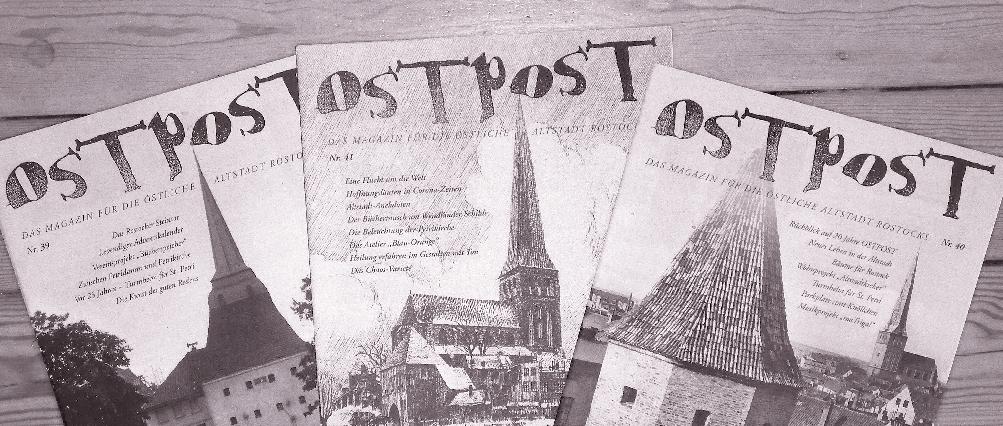 OSTPOST
DAS MAGAZIN FÜR DIE ÖSTLICHE ALTSTADT ROSTO
Nr. 39
Das Rostocher
Lebendiger Adventskalender
Vereinsprojekt
Zwischen Freidamm und Petrikirche
Vor 25 Jahren – Turmhelm für St. Petri
Die Kunst des guten
OSTPOST
DAS MAGAZIN FÜR DIE ÖSTLICHE ALTSTADT ROSTOC
Nr. 41
Eine Flucht um die Welt
Hoffnungslauten in Corona-Zeiten
Altstadt-Anekdoten
Der Büchertausch am Wendländer Schilde
Die Beleuchtung der Petrikirche
Das Atelier „Blau-Orange“
Heilung erfahren im Gestalten mit Ton
Das Chaos-Varieté
OSTPOST
DAS MAGAZIN FÜR DIE ÖSTLICHE ALTSTADT ROSTOCKS
Nr. 40
Rückblick auf 20 Jahre OSTPOST
Neues Leben in der Altstadt
Bäume für Rostock
Turmhelm für St. Petri
Parkplatz
Musikprojekt